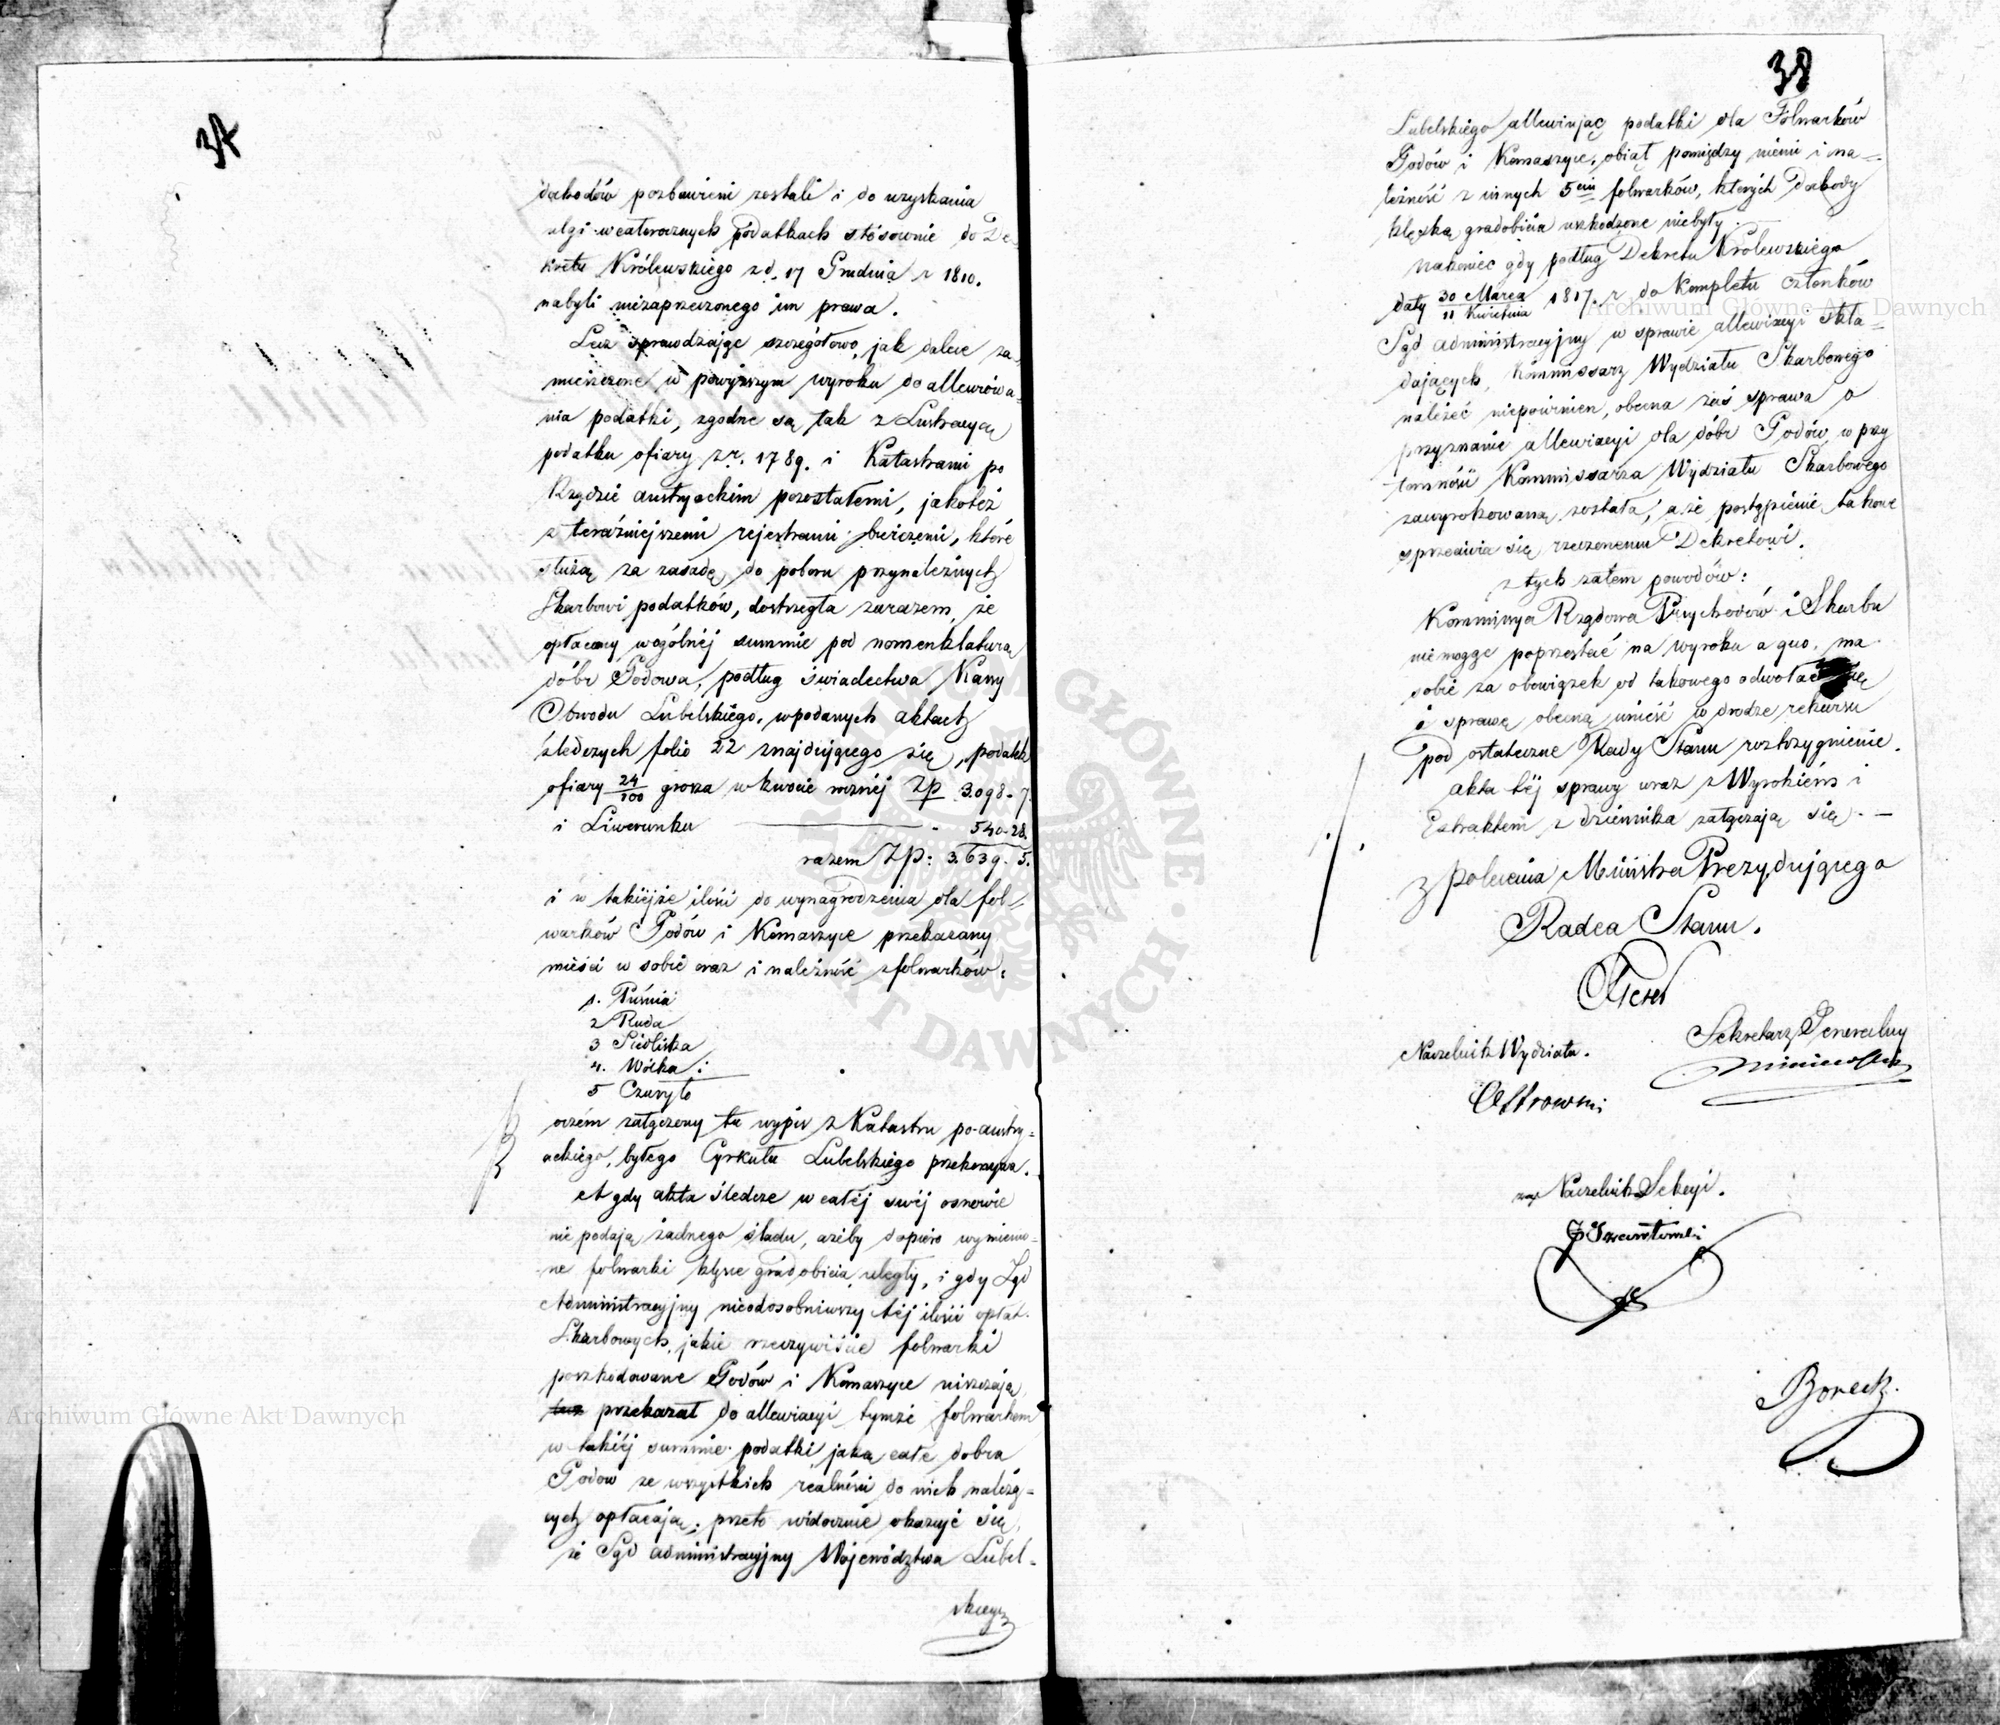 37
dochodów pozbawieni zostali i do uzyskania
ulgi w całorocznych podatkach stósownie do De-
kretu Królewskiego z d. 17 Grudnia r 1810.
nabyli niezaprzeczonego im prawa.
Lecz sprawdzając szczegółowo, jak dalece za-
mieszczone w powyższym wyroku do allewiowa-
nia podatki, zgodne są tak z Lustracyą
podatku ofiary z r. 1789. i Katastrami po
Rządzie austryackim pozostałemi, jakoteż
z teraźniejszemi rejestrami bierczemi, które
służą za zasadę do poboru przynależnych
Skarbowi podatków, dostrzegła zarazem, że
opłacany wogólnéj summie pod nomenklaturą
dóbr Godowa, podług świadectwa Kassy
Obwodu Lubelskiego, w podanych aktach
śledczych folio 22 znajdującego się, podatek
ofiary 24/100 grosza w kwocie roznéj Zp 3.098-7.
i Liwerunku - 540-28.
razem Zp: 3.639. 5.
i w takiejże ilości do wynagrodzenia dla fol-
warków Godów i Komaszyce przekazany
mieści w sobie oraz i należność z folwarków:
1. Puśnia
2 Ruda
3 Siedliska
4. Wólka:
5 Czuryło
oczém załączony tu wypis z Katastru po-austry-
ackiego, byłego Cyrkułu Lubelskiego przekonywa.
A gdy akta śledcze w całéj swéj osnowie
nie podają żadnego śladu, ażeby dopiero wymienio-
ne folwarki klęsce gradobicia uległy, i gdy Sąd
Administracyjny nieodosobniwszy téj ilości opłat
Skarbowych, jakie rzeczywiście folwarki
poszkodowane Godów i Komaszyce uiszczają,
przekazał do allewiacyi tymże folwarkom
w takiéj summie podatki, jaką całe dobra
Godow ze wszystkich realności do nich należą-
cych opłacają; przeto widocznie okazuje się,
że Sąd administracyjny Województwa Lubel-
skiego
38
Lubelskiego allewiując podatki dla Folwarków
Godów i Komaszyce, objął pomiędzy niemi i na-
leżność z innych 5ciu folwarków, których dochody
klęską gradobicia uszkodzone niebyły.
Nakoniec gdy podług Dekretu Królewskiego
daty 30 Marca/11 Kwietnia 1817. r do Kompletu członków
Sąd administracyjny w sprawie allewiacyi skła-
dających, Kommissarz Wydziału Skarbowego
należeć niepowinien, obecna zaś sprawa o
przyznanie allewiacyi dla dóbr Godów, w przy
tomności Kommissarza Wydziału Skarbowego
zawyrokowaną została; a że postąpienie takowe
sprzeciwia się rzeczonemu Dekretowi.
z tych zatem powodów:
Kommissya Rządowa Przychodów i Skarbu
niemogąc poprzestać na wyroku a quo, ma
sobie za obowiązek od takowego odwołać się
i sprawę obecną unieść w drodze rekursu
pod ostateczne Rady Stanu roztrzygnienie.
akta téj sprawy wraz z Wyrokiém i
Extraktem z dziennika załączają się. —
z Polecenia Ministra Prezydującego
Radca Stanu.
Naczelnik Wydziału.
Sekretarz Generalny
Ostrowski
Naczelnik Sekcyi.
Archiwum Główne Akt Dawnych
Archiwum Główne Akt Dawnych